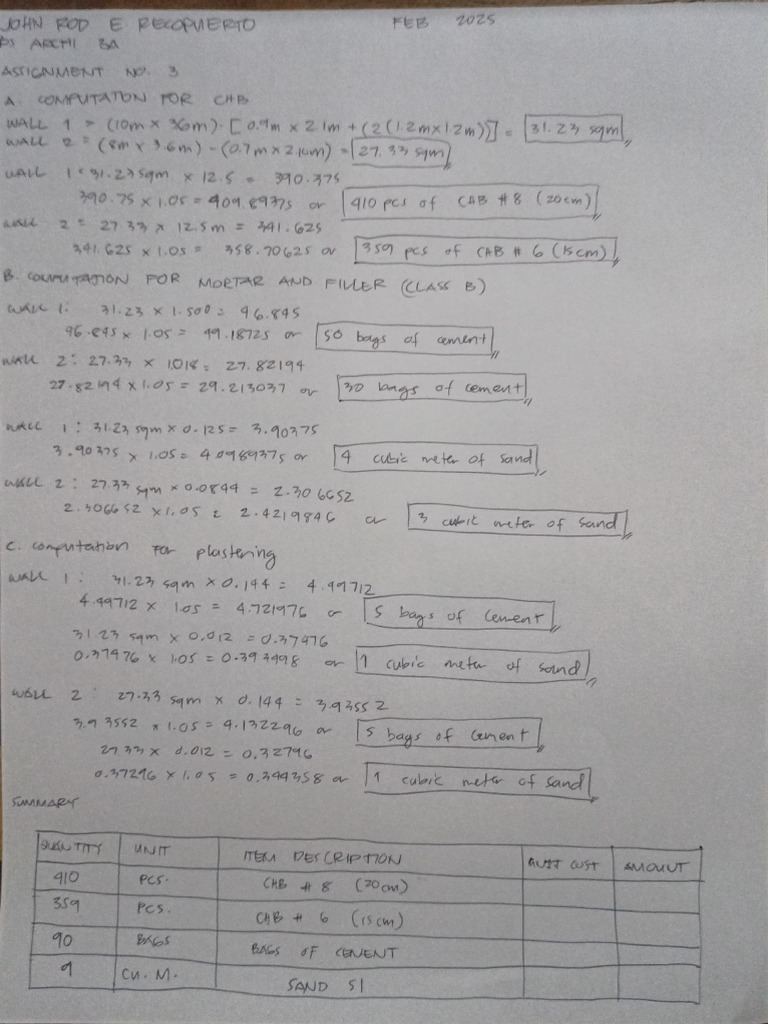 JOHN ROD E RECOPUERTO FEB 2025
BS ARCHI 3A
ASSIGNMENT NO. 3
A. COMPUTATION FOR CHB
WALL 1 = (10m x 36m) - [0.9m x 2.1m + (2(1.2m x 1.2m))] = 31.23 sqm
WALL 2 = (8m x 3.6m) - (0.7m x 2.10m) = 27.33 sqm
WALL 1 = 31.23 sqm x 12.5 = 390.375
390.75 x 1.05 = 409.89375 or 410 pcs of CHB #8 (20cm)
WALL 2 = 27.33 x 12.5m = 341.625
341.625 x 1.05 = 358.70625 or 359 pcs of CHB # 6 (15cm)
B. COMPUTATION FOR MORTAR AND FILLER (CLASS B)
WALL 1: 31.23 x 1.500 = 46.845
46.845 x 1.05 = 49.18725 or 50 bags of cement
WALL 2: 27.33 x 1.018 = 27.82194
27.82194 x 1.05 = 29.213037 or 30 bags of cement
WALL 1: 31.23 sqm x 0.125 = 3.90375
3.90375 x 1.05 = 4.0989375 or 4 cubic meter of sand
WALL 2: 27.33 sqm x 0.0844 = 2.306652
2.306652 x 1.05 = 2.4219846 or 3 cubic meter of sand
C. computation for plastering
WALL 1: 31.23 sqm x 0.144 = 4.49712
4.49712 x 1.05 = 4.721976 or 5 bags of cement
31.23 sqm x 0.012 = 0.37476
0.37476 x 1.05 = 0.393498 or 1 cubic meter of sand
WALL 2: 27.33 sqm x 0.144 = 3.93552
3.93552 x 1.05 = 4.132296 or 5 bags of cement
27.33 x 0.012 = 0.32796
0.37296 x 1.05 = 0.344358 or 1 cubic meter of sand
SUMMARY
QUANTITY UNIT ITEM DESCRIPTION UNIT COST AMOUNT
410 PCS. CHB # 8 (20cm)
359 PCS. CHB # 6 (15cm)
90 BAGS BAGS OF CEMENT
9 CU. M. SAND S1